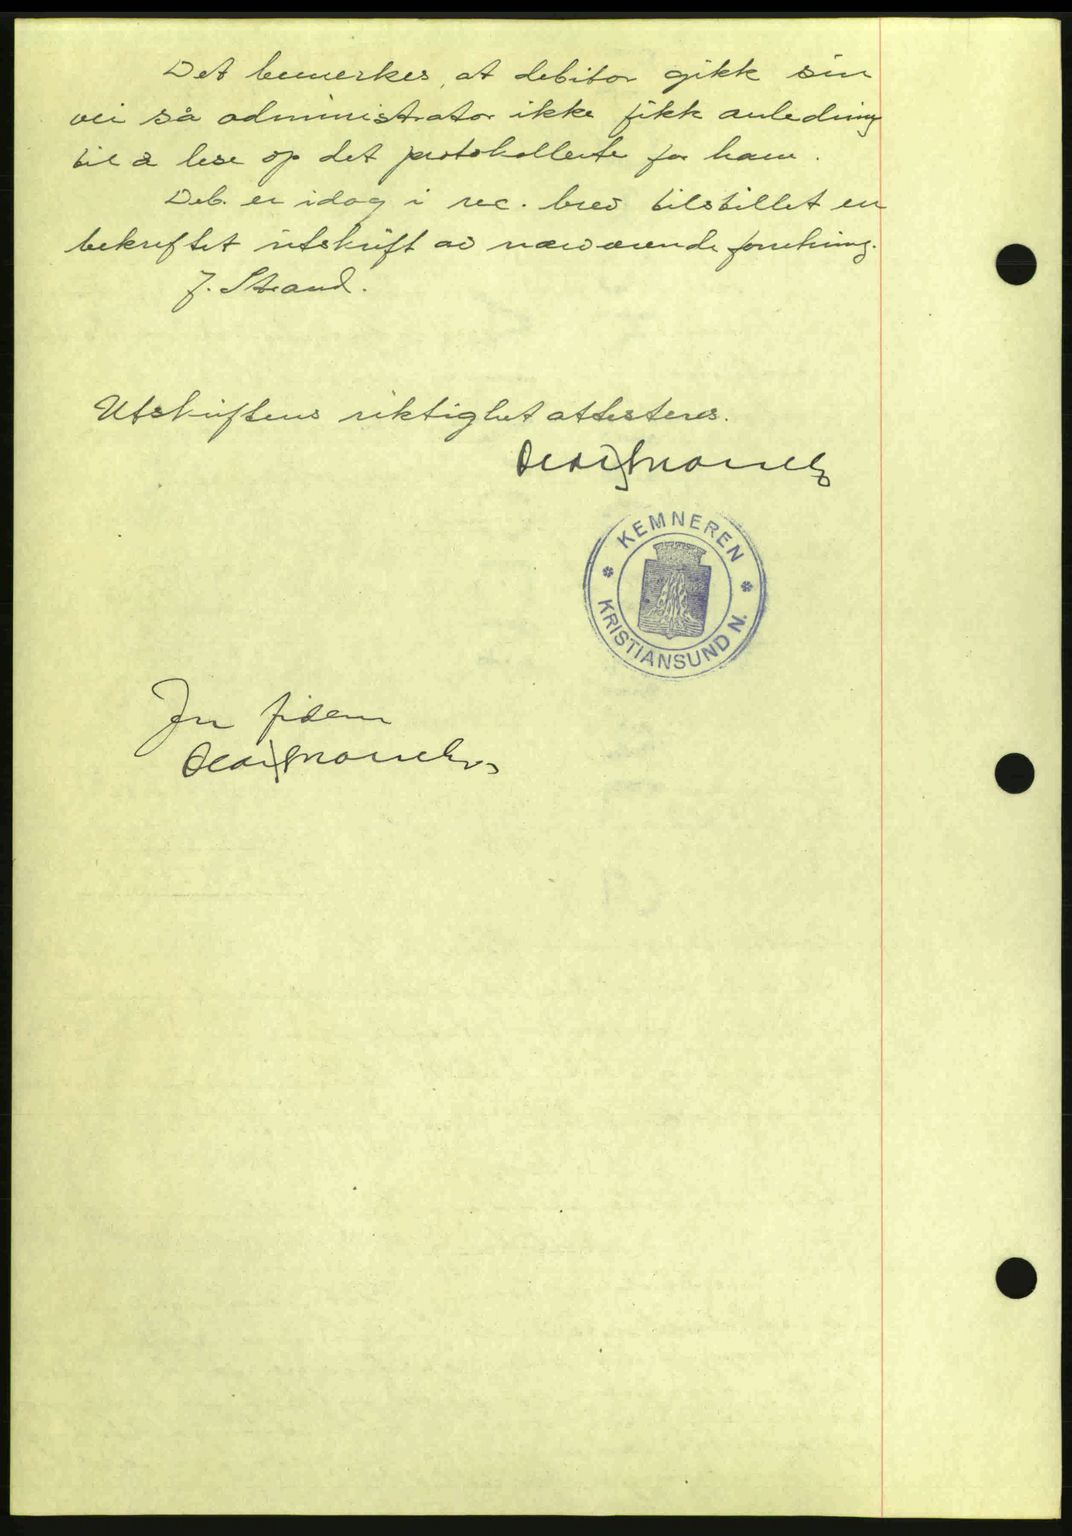 Det bemerkes, at debitor gikk sin
vei så administrator ikke fikk anledning
til å lese op det protokollerte for ham.
Deb. er idag i rec. brev tilstillet en
bekreftet utskrift av nærværende forretning.
J. Strand.
Utskriftens riktighet attesteres.
KEMNEREN
KRISTIANSUND N.
In fidem